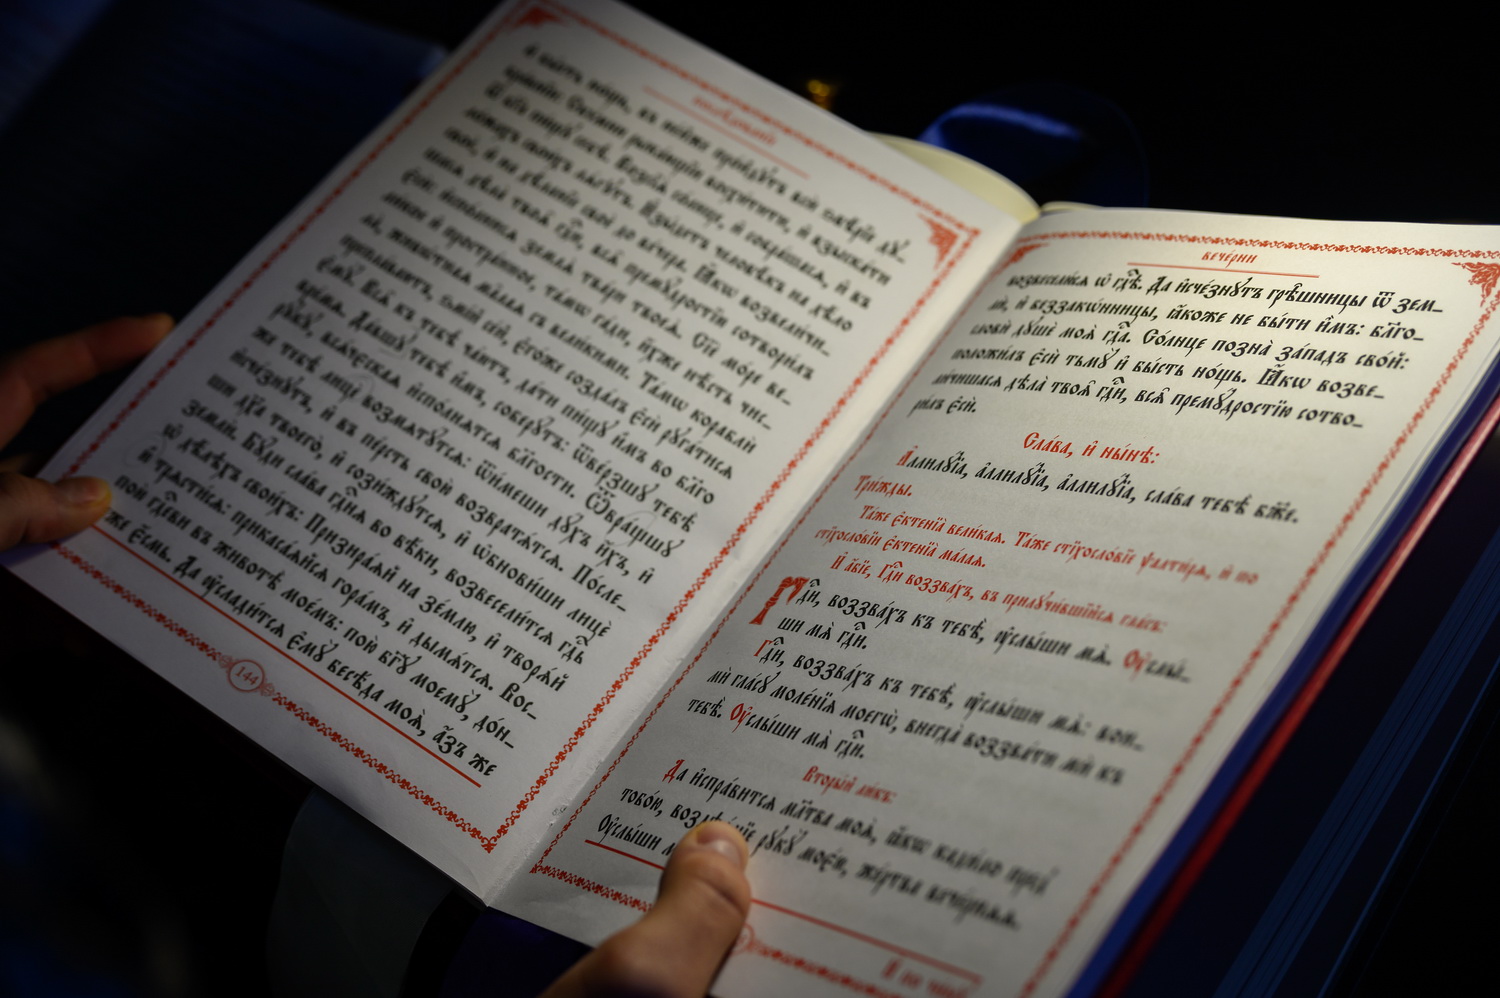 и҆ бы́сть но́щь, въ не́йже про́йдꙋтъ всѝ ѕвѣ́рїе дꙋ_
Ѿ бг҃а пи́щꙋ себѣ̀. Возсїѧ̀ со́лнце, и҆ собра́шасѧ, и҆ въ
ло́жахъ свои́хъ лѧ́гꙋтъ. И҆зы́детъ человѣ́къ на дѣ́ло
своѐ, и҆ на дѣ́ланїе своѐ до ве́чера. Ꙗ҆́кѡ возвели́чи_
шасѧ дѣла̀ твоѧ̑ гдⷭ҇и, всѧ̑ премꙋ́дростїю сотвори́лъ
є҆сѝ: и҆спо́лнисѧ землѧ̀ тва́ри твоеѧ̀. Сїѐ мо́ре ве_
ли́кое и҆ простра́нное, та́мѡ га́ди, и҆́хже нѣ́сть чис_
ла̀, живѡ́тнаѧ ма̑лаѧ съ вели́кими. Та́мѡ корабли̑
пре́плаваютъ, ѕмі́й се́й, є҆го́же созда́лъ є҆сѝ рꙋга́тисѧ
є҆мꙋ̀. Всѧ̑ къ тебѣ̀ ча́ютъ, да́ти пи́щꙋ и҆̀мъ во бл҃го
вре́мѧ. Да́вшꙋ тебѣ̀ и҆̀мъ, соберꙋ́тъ: ѿве́рзшꙋ тебѣ̀
рꙋ́кꙋ, всѧ́чєскаѧ и҆спо́лнѧтсѧ бл҃гости. Ѿвра́щшꙋ
же тебѣ̀ лицѐ возмѧтꙋ́тсѧ: ѿи́меши дꙋ́хъ и҆́хъ, и҆
и҆сче́знꙋтъ, и҆ въ пе́рсть свою̀ возвратѧ́тсѧ. По́сле_
ши дх҃а твоего̀, и҆ сози́ждꙋтсѧ, и҆ ѡ҆бнови́ши лицѐ
землѝ. Бꙋ́ди сла́ва гдⷭ҇нѧ во вѣ́ки, возвесели́тсѧ гдⷭ҇ь
ѡ҆ дѣ́лѣхъ свои́хъ: Призира́ѧй на зе́млю, и҆ творѧ́й
ю҆̀ трѧсти́сѧ: прикаса́ѧйсѧ гора́мъ, и҆ дымѧ́тсѧ. Вос_
пою̀ гдⷭ҇еви въ животѣ̀ мое́мъ: пою̀ бг҃ꙋ моемꙋ̀, до́н_
же є҆́смь. Да ᲂу҆слади́тсѧ є҆мꙋ̀ бесѣ́да моѧ̀, а҆́зъ же
144
вече́рни
возвеселю́сѧ ѡ҆ гдⷭ҇ѣ. Да и҆сче́знꙋтъ грѣ̑шницы ѿ зем_
лѝ, и҆ беззакѡ́нницы, ꙗ҆́коже не бы́ти и҆̀мъ: бл҃го_
словѝ дꙋшѐ моѧ̀ гдⷭ҇а. Со́лнце позна̀ за́падъ сво́й:
положи́лъ є҆сѝ тьмꙋ̀ и҆ бы́сть но́щь. Ꙗ҆́кѡ возве_
ли́чишасѧ дѣла̀ твоѧ̑ гдⷭ҇и, всѧ̑ премꙋ́дростїю сотво_
ри́лъ є҆сѝ.
Сла́ва, и҆ ны́нѣ:
А҆ллилꙋ́їа, а҆ллилꙋ́їа, а҆ллилꙋ́їа, сла́ва тебѣ̀ бж҃е.
Три́жды.
Та́же є҆ктенїа̀ вели́каѧ. Та́же стїхосло́вїе ѱалти́рѧ, и҆ по
стїхосло́вїи є҆ктенїа̀ ма́лаѧ.
И҆ а҆́бїе, Гдⷭ҇и воззва́хъ, въ прилꙋчи́вшїйсѧ гла́съ:
Гдⷭ҇и, воззва́хъ къ тебѣ̀, ᲂу҆слы́ши мѧ̀. Оу҆слы́_
ши мѧ̀ гдⷭ҇и.
Гдⷭ҇и, воззва́хъ къ тебѣ̀, ᲂу҆слы́ши мѧ̀: вон_
мѝ гла́сꙋ моле́нїѧ моегѡ̀, внегда̀ воззва́ти мѝ къ
тебѣ̀. Оу҆слы́ши мѧ̀ гдⷭ҇и.
Вторы́й ли́къ:
Да и҆спра́витсѧ мл҃тва моѧ̀, ꙗ҆́кѡ кади́ло пред̾
тобо́ю, воздѣѧ́нїе рꙋкꙋ̀ моє́ю, же́ртва вече́рнѧѧ.
Оу҆слы́ши
И҆ по чи́нꙋ